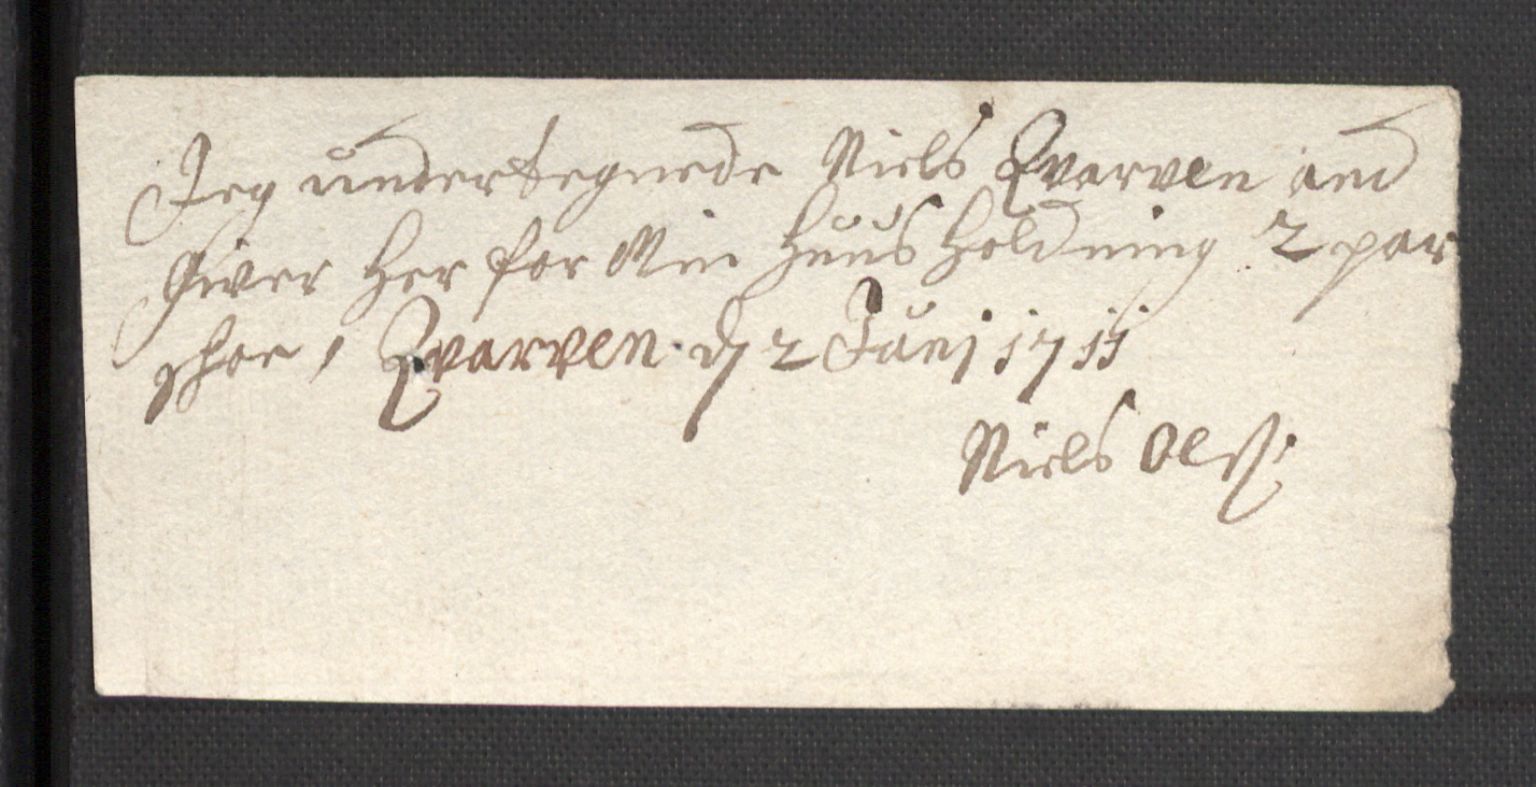 Jeg undertegnede Niels Qvarven and
Giver her for Min huus holdning 2 par
schoe, Qvarven d 2 Junj 1711
Niels Olß: